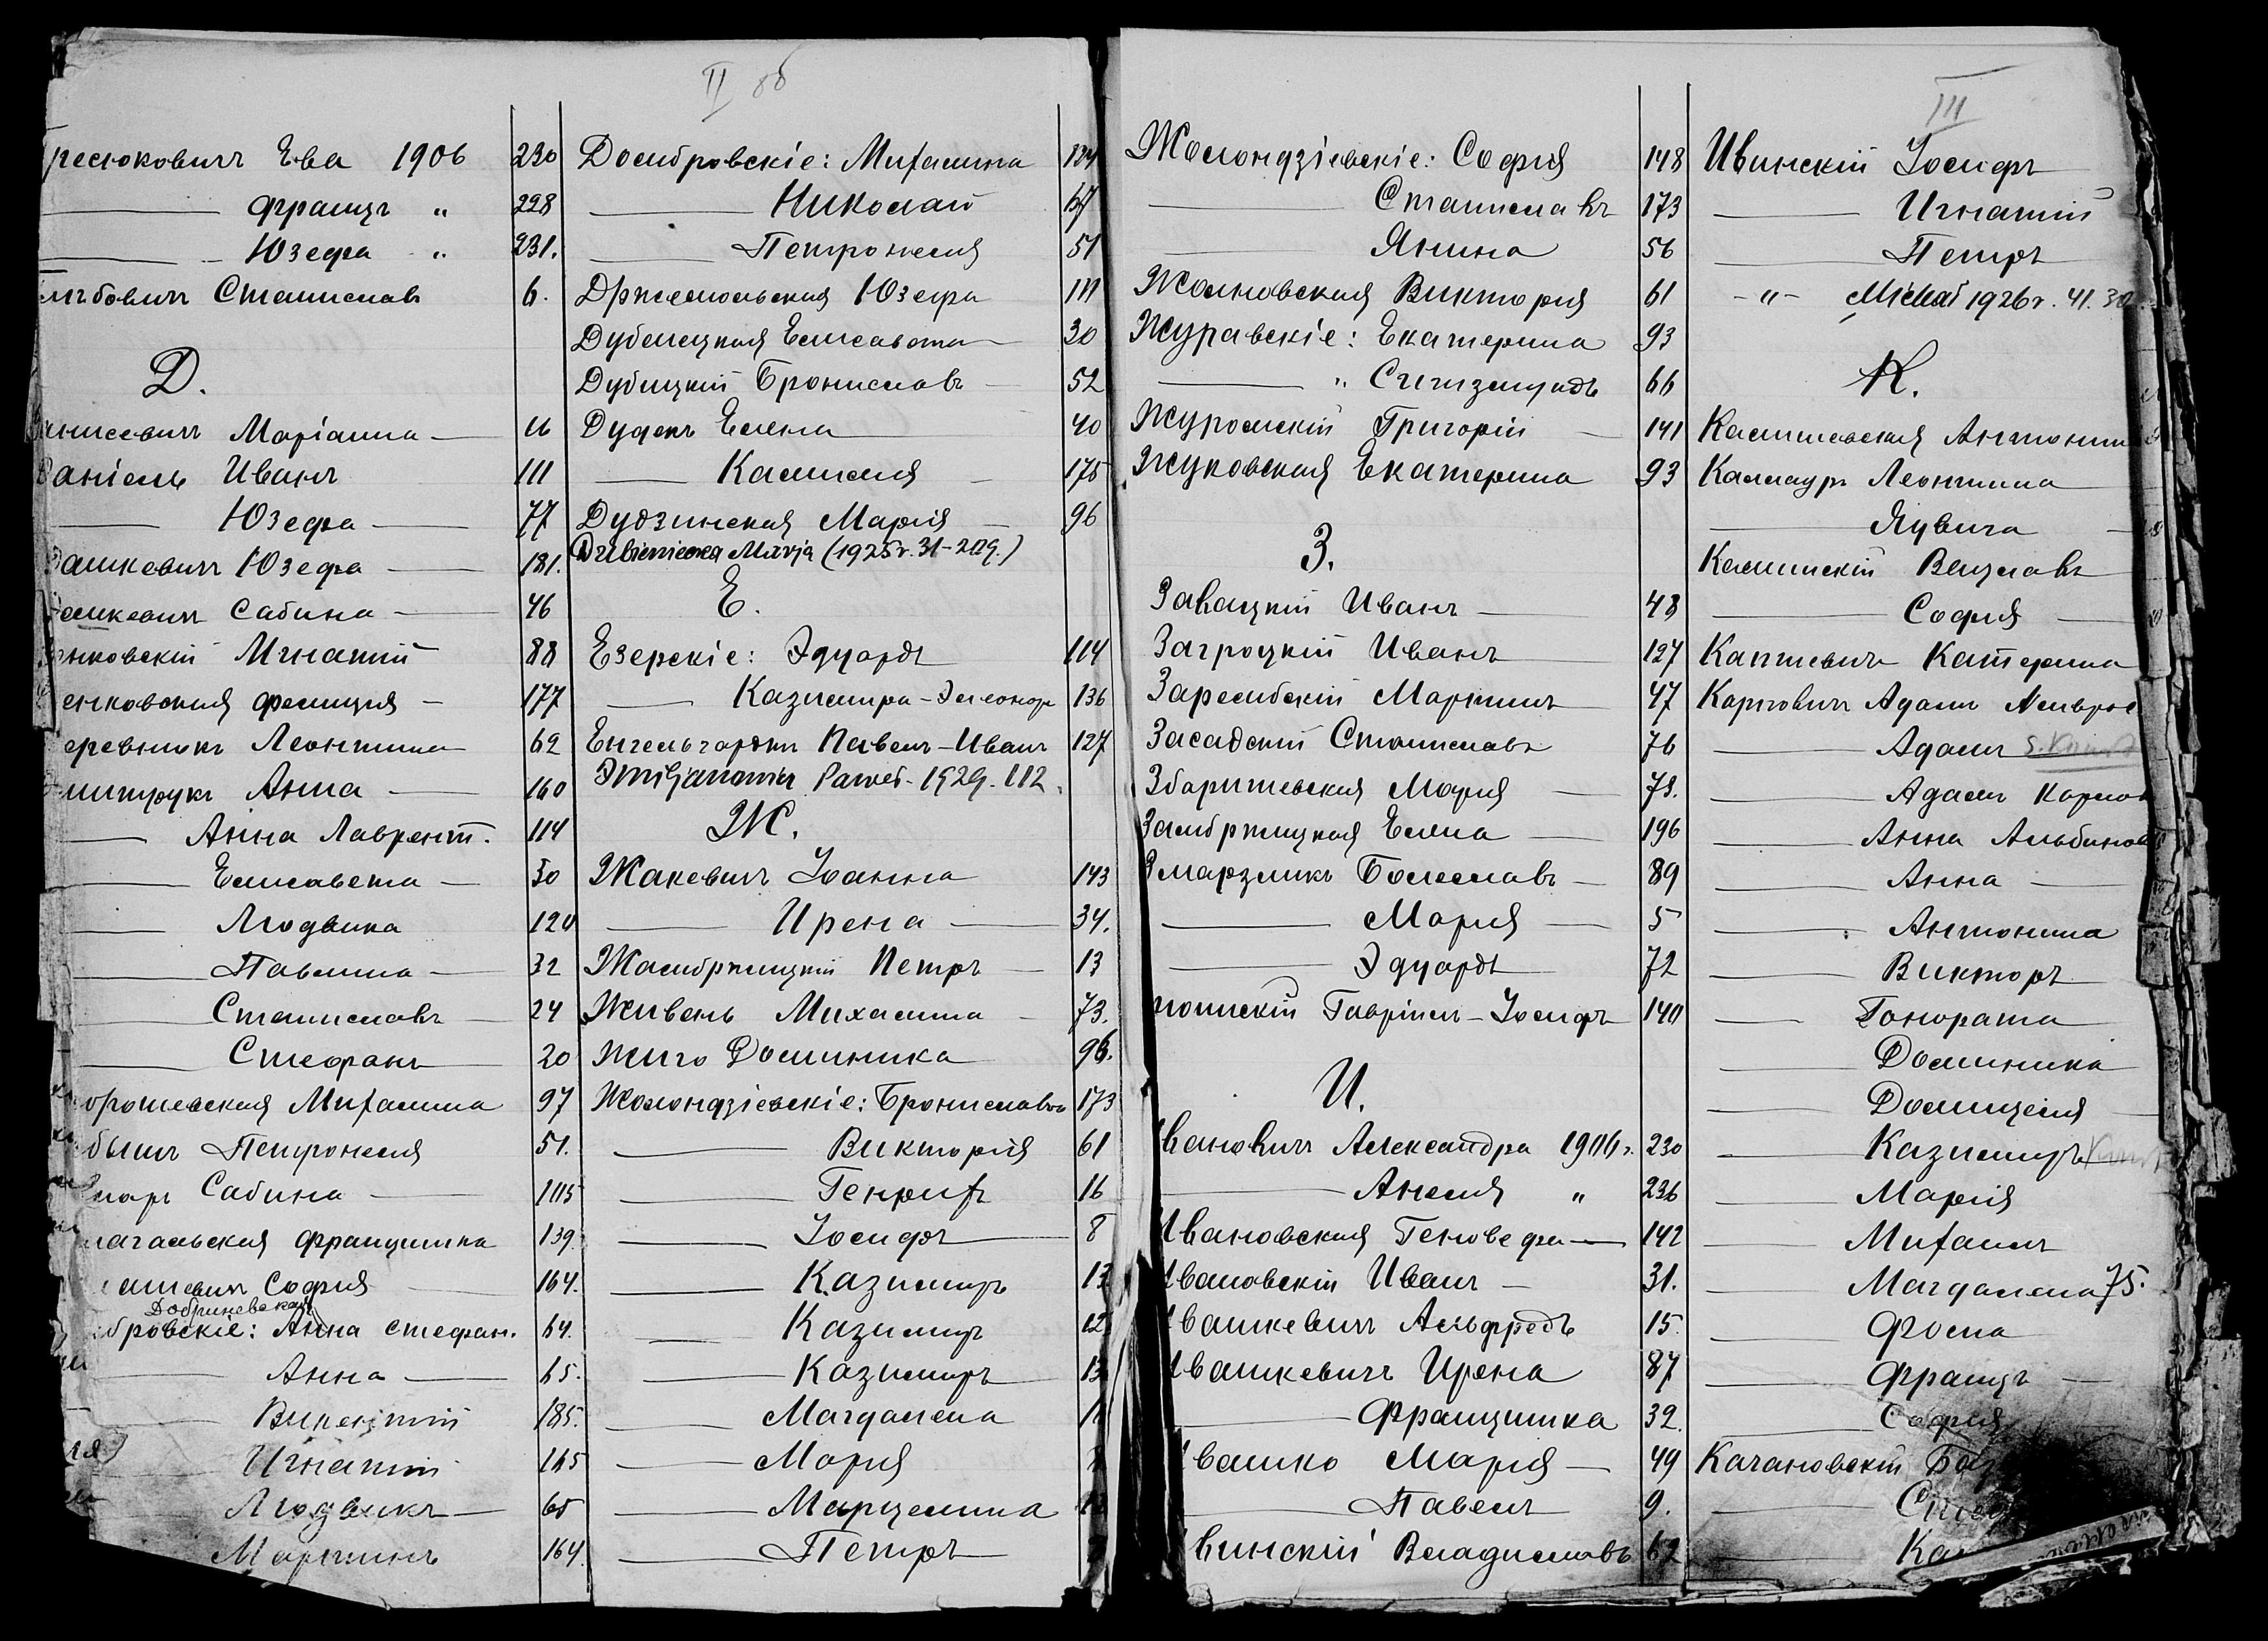 II об
Ева 1906 230
Францъ " 228
Юзефа " 231.
Станиславъ 6.
Д.
Маріанна 16
Даніель Иванъ 111
Юзефа 77
Дашкевичъ Юзефа 181.
Сабина 46
Игнатій 88
Фелиція 177
Леонтина 62
Анна 160
Анна Лаврент. 114
Елисавета 30
Людвика 120
Павлина 32
Станиславъ 24
Стефанъ 20
Михалина 97
Петронеля 51.
Сабина 105
Францишка 139.
София 164.
Добриневская
бровскіе: Анна Стефан. 64.
Анна 65.
Викентій 185.
Игнатій 165
Людвикъ 65
Мартинъ 164.
Домбровскіе: Михалина
Николай
Петронеля 51
Држемольская Юзефа 111
Дубелецкая Елисавета 30
Дубицкій Брониславъ 52
Дудекъ Елена 40
Камилия 175
Дудзинская Марія 96
Marja (1925r. 31-209.)
Е.
Езерскіе: Эдуардъ 114
Казимира-Элеонора 136
Енгельгардтъ Павелъ-Иванъ 127
Emiljanowicz Paweł - 1929. 112.
Ж.
Жакевичъ Іоанна 143
Ирена 34.
Жамбржицкій Петръ 13
Живень Михалина 73.
Жиго Доминика 96.
Жолондзіевскіе: Брониславъ 173
Викторія 61
Генрихъ 16
Іосифъ 8
Казимиръ 13
Казимиръ 12
Казимиръ 13
Магдалена
Марія
Марцелина
Петръ
III
Жолондзіевскіе: Софія 148
Станиславъ 173
Янина 56
Жолновская Викторія 61
Журавскіе: Екатерина 93
" Сигизмундъ 66
Журомскій Григорій 141
Жуковская Екатерина 93
З.
Завацкій Иванъ 48
Загроцкій Иванъ 127
Зарембскій Мартинъ 47
Засадскій Станиславъ 76
Збаришевская Марія 73.
Замбржицкая Елена 196
Змарзликъ Болеславъ 89
Марія 5
Эдуардъ 72
Гавріилъ-Іосифъ 140
И.
Ивановичъ Александра 1906г. 230
Анеля " 236
Ивановская Геновефа 142
Ивановскій Иванъ 31.
Ивашкевичъ Альфредъ 15.
Ивашкевичъ Ирена 87
Францишка 39.
Ивашко Марія 49
Павелъ 9.
Ивинскій Владиславъ 62
Ивинскій Іосифъ
Игнатій
Петръ
-"- Michał 1926r. 41.
К.
Калишевская Антонина
Каллауръ Леонтина
Ядвига
Каминскій Вацлавъ
София
Каптевичъ Катерина
Карповичъ Адамъ
Адамъ
Адамъ
Анна
Анна
Антонина
Викторъ
Гонората
Доминика
Домицеля
Казимиръ
Марія
Михаилъ
Магдалена 75.
Фома
Францъ
Софія
Качановскій